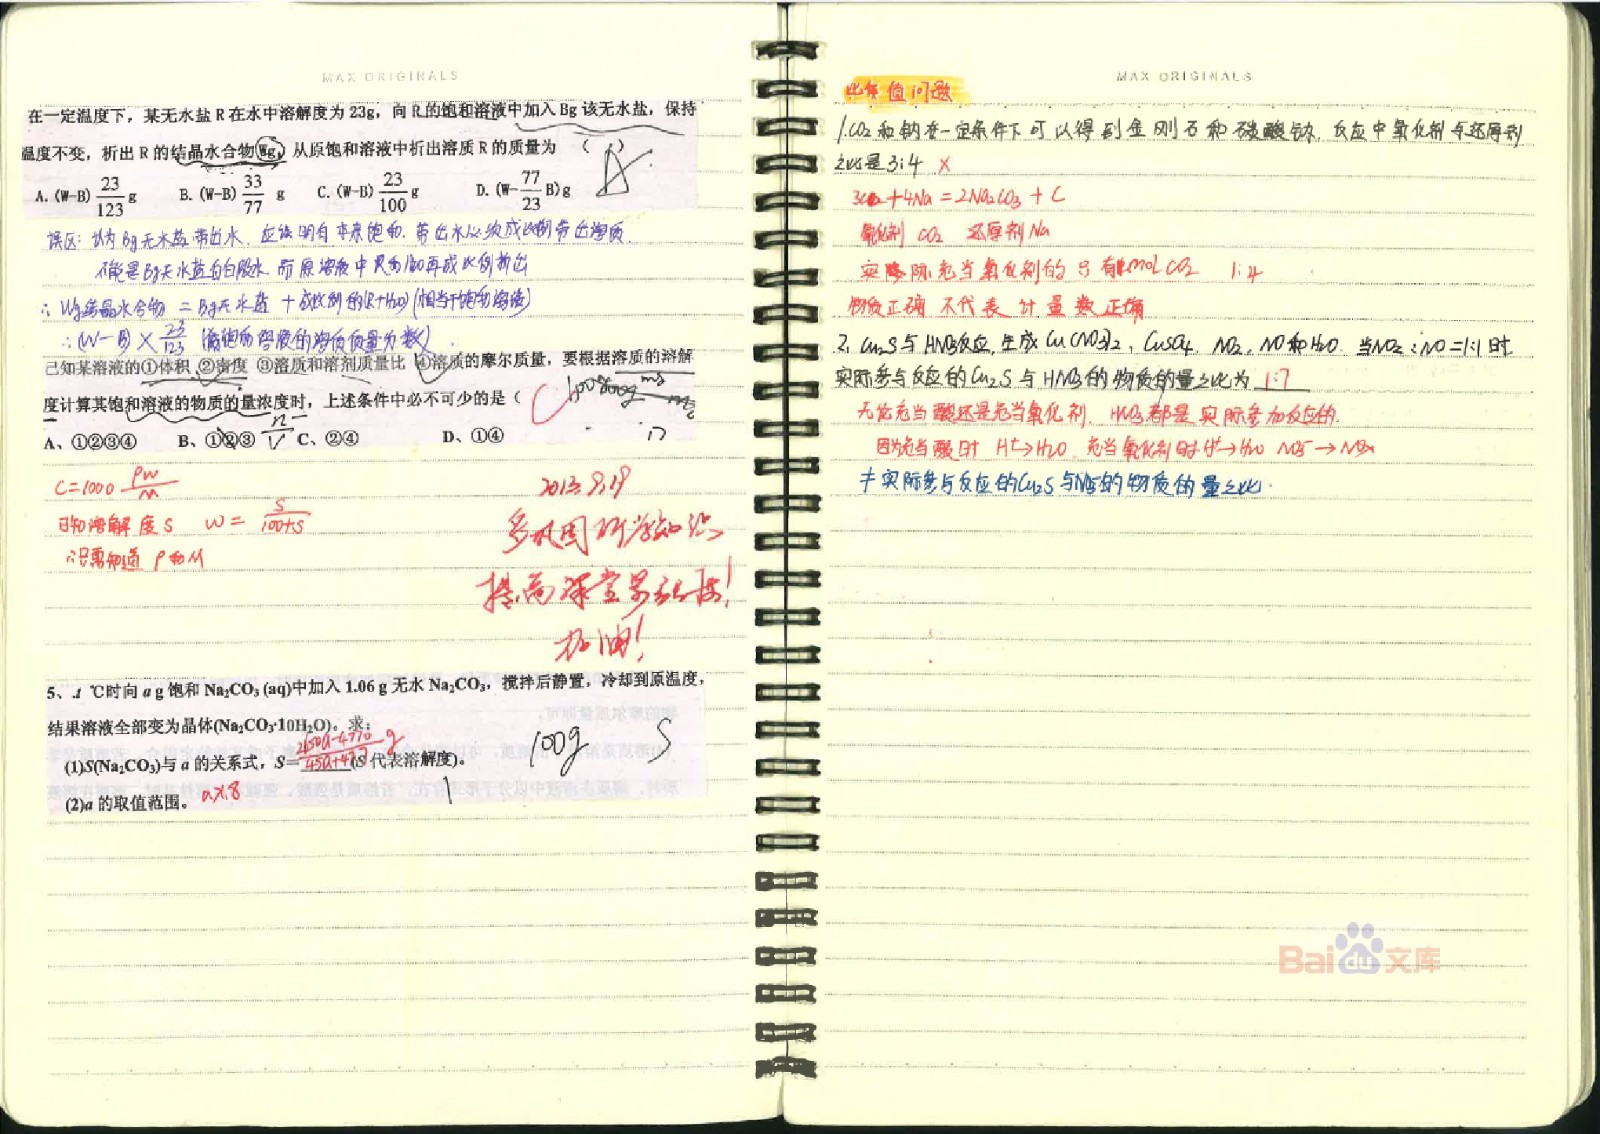 MAX ORIGINALS
在一定温度下，某无水盐 R 在水中溶解度为 23g，向 R 的饱和溶液中加入 Bg 该无水盐，保持
温度不变，析出 R 的结晶水合物 Wg，从原饱和溶液中析出溶质 R 的质量为 （ ） A
A. (W-B) 23/123 g B. (W-B) 33/77 g C. (W-B) 23/100 g D. (W- 77/23 B) g
误区：认为Bg无水盐带出水，应该明白本来饱和，带出水必须成比例带出溶质.
不能是Bg无水盐白白脱水，而原溶液中
∴ Wg结晶水合物 = Bg无水盐 + 成比例的(R+H₂O) (相当于饱和溶液)
∴ (W-B) × 23/123 (溶液的溶质质量分数).
已知某溶液的①体积 ②密度 ③溶质和溶剂质量比 ④溶质的摩尔质量，要根据溶质的溶解
度计算其饱和溶液的物质的量浓度时，上述条件中必不可少的是（ C
n/V
A、①②③④ B、①②③ C、②④ D、①④
C=1000 ρw/M
已知溶解度S w= S/100+S
∴只需知道 ρ和M
2013.9.19
多巩固所学知识
提高课堂
加油!
5、.t ℃时向 a g 饱和 Na₂CO₃ (aq)中加入 1.06 g 无水 Na₂CO₃，搅拌后静置，冷却到原温度，
结果溶液全部变为晶体(Na₂CO₃·10H₂O)。求：
(1)S(Na₂CO₃)与 a 的关系式，S= 2650a-4770/45a+477 g (S 代表溶解度)。
100g S
(2)a 的取值范围。
MAX ORIGINALS
比值问题
1.CO₂和钠在一定条件下可以得到金刚石和碳酸钠，反应中氧化剂与还原剂
之比是3:4 ×
3CO₂+4Na=2Na₂CO₃+C
氧化剂 CO₂ 还原剂Na
实际充当氧化剂的只有1molCO₂ 1:4
物质正确 不代表 计量数正确
2. Cu₂S与HNO₃反应,生成Cu(NO₃)₂、CuSO₄、NO₂、NO和H₂O. 当NO₂:NO=1:1时,
实际参与反应的Cu₂S与HNO₃的物质的量之比为 1:7
无论充当酸还是充当氧化剂，HNO₃都是实际参加反应的.
因为充当酸时 H⁺→H₂O 充当氧化剂时H⁺→H₂O NO₃⁻→NOx
≠实际参与反应的Cu₂S与NO₃⁻的物质的量之比.
Baidu文库